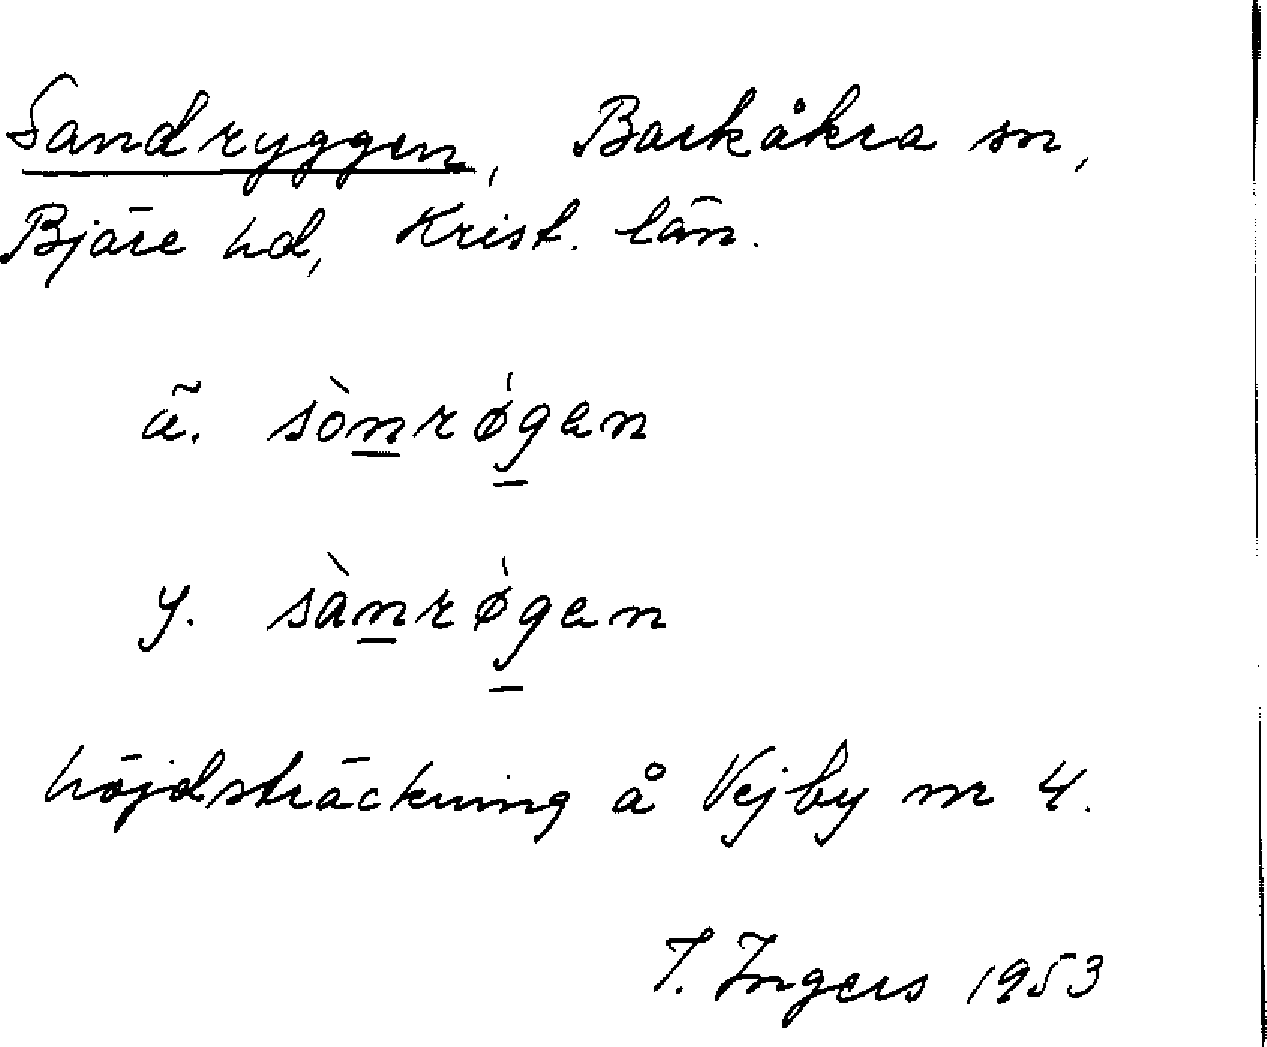 Sandryggen, Barkåkra sn,
Bjäre hd, Krist. län.
ä. sònrø̍gen
y. sànrø̍gen
höjdsträckning å Vejby nr 4.
I. Ingers 1953